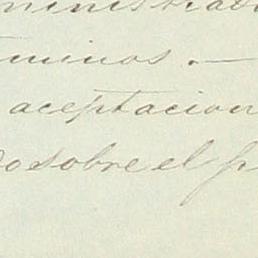 ministrad
terminos. —
aceptacion
do sobre el p